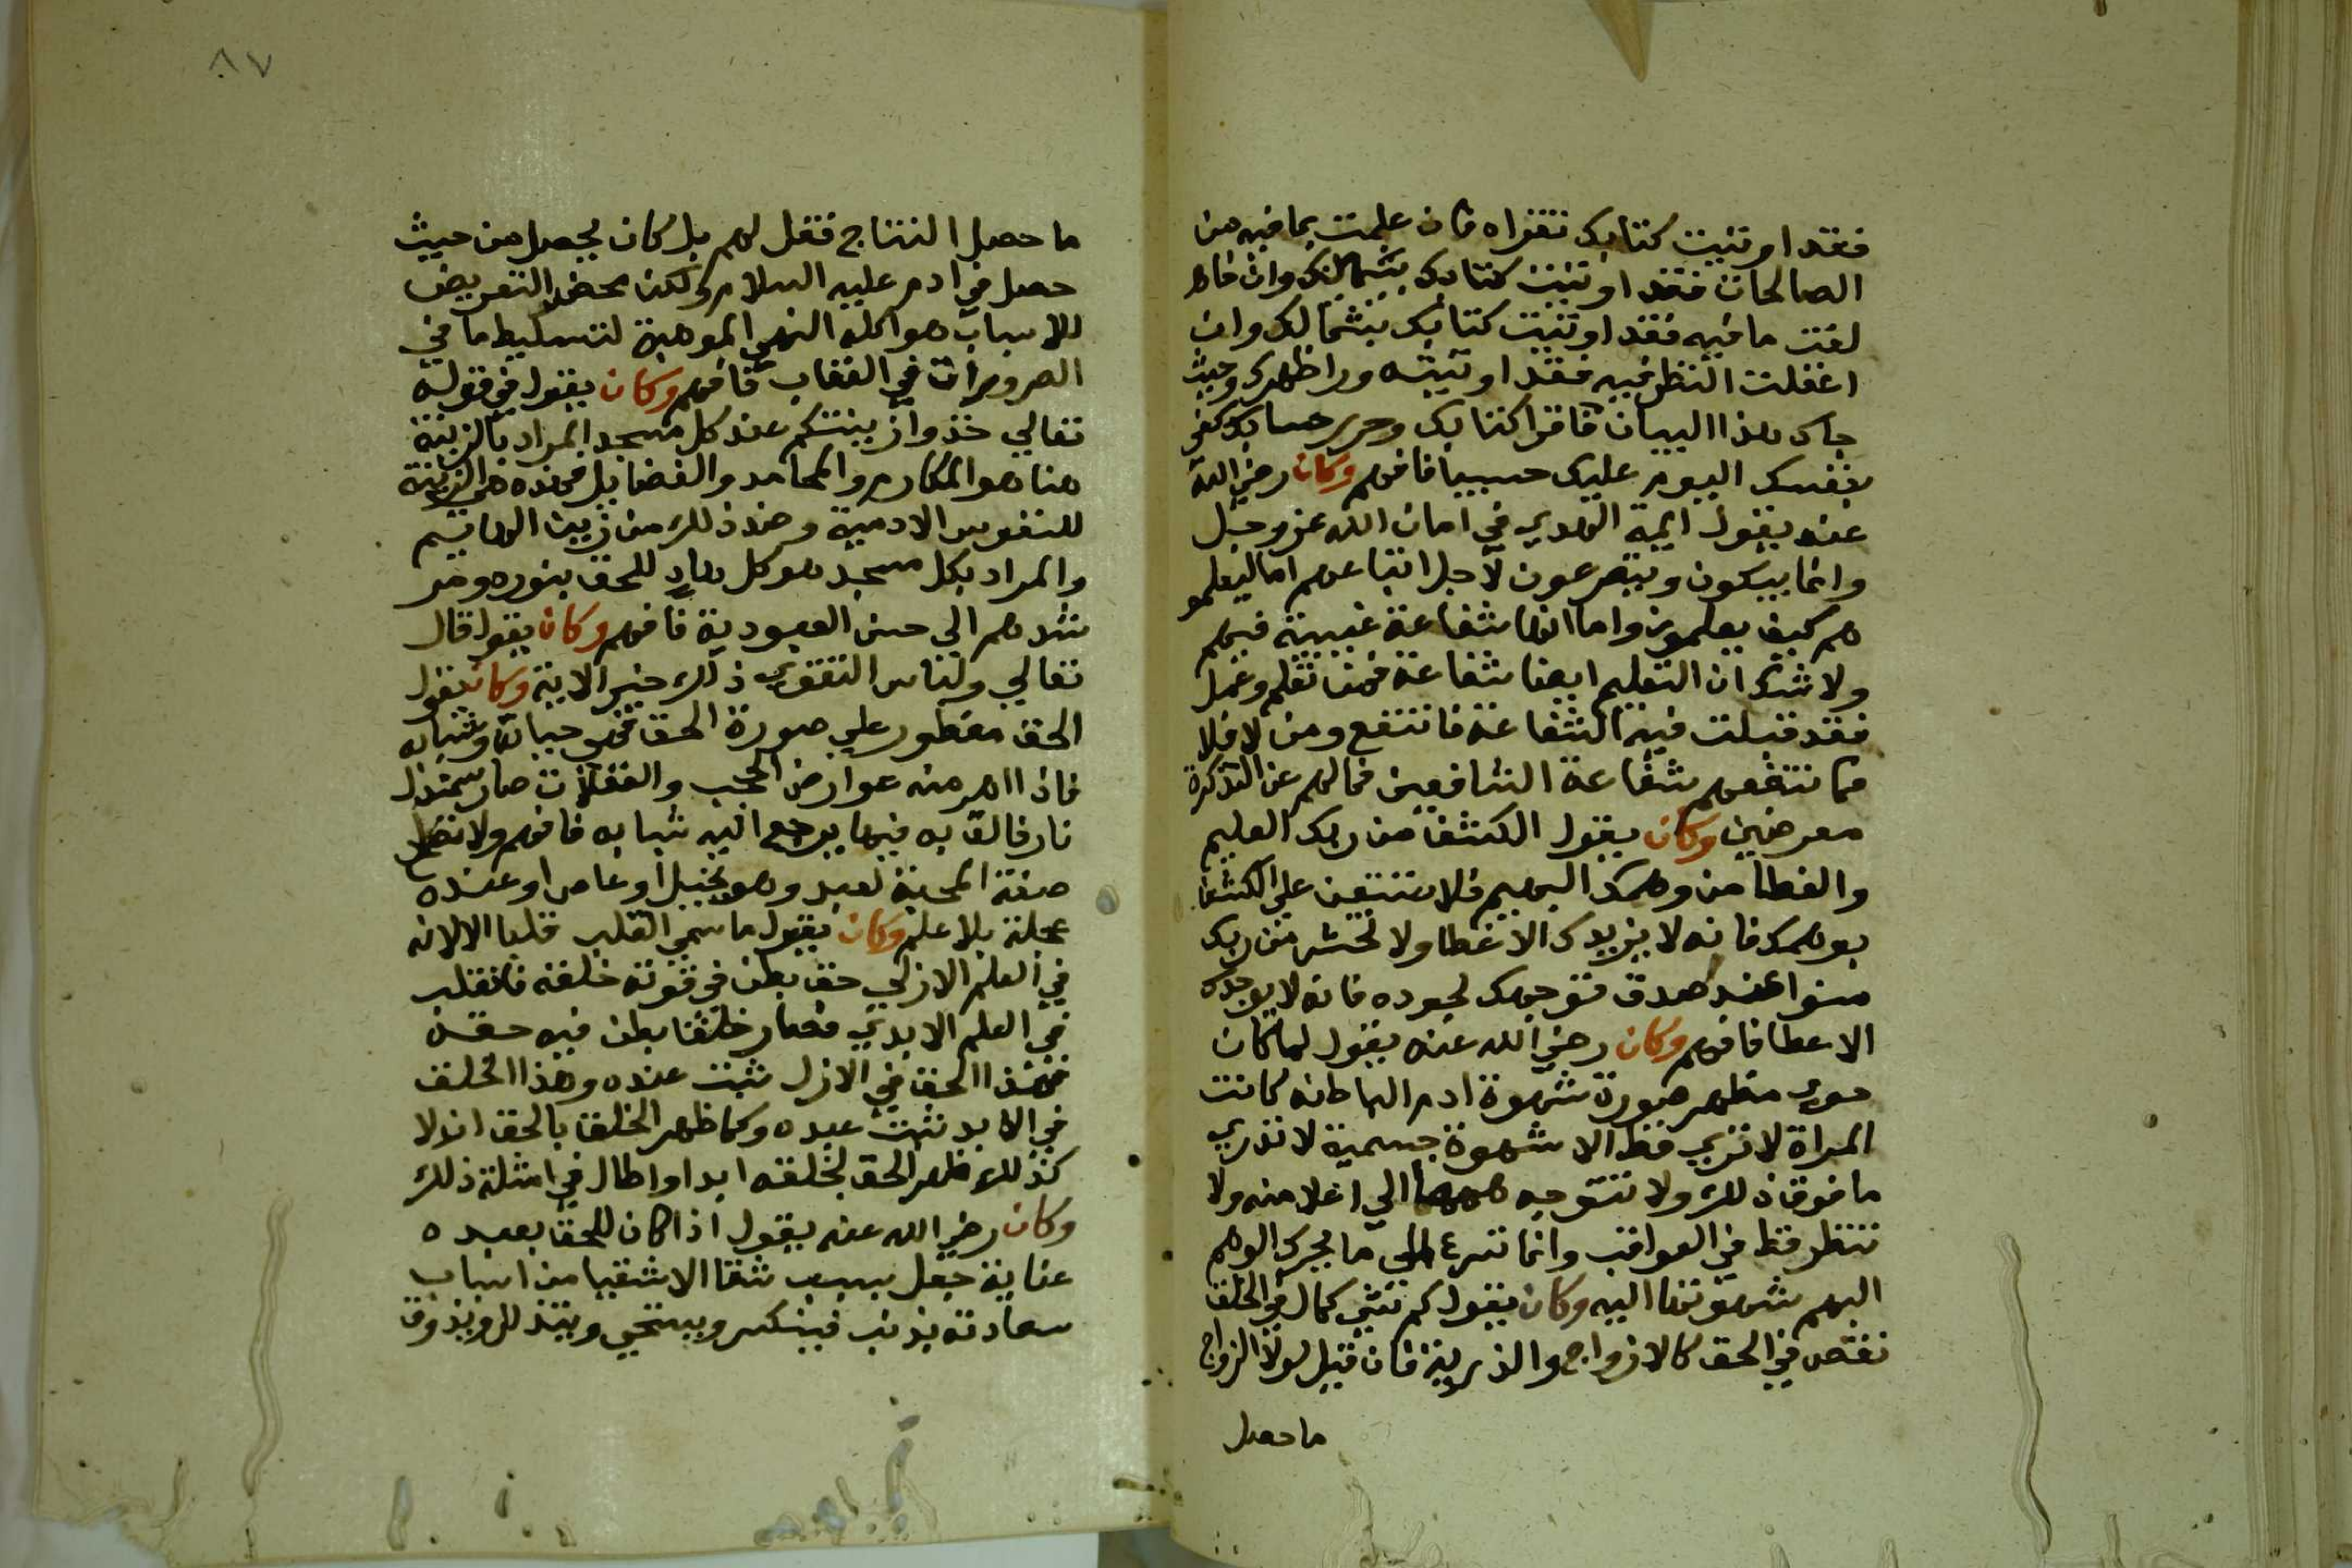 فقد اوتيت كتابك تقراه فان علمت بما فيه من
الصالحات فقد اوتيت كتابك بشمالك وان خاط
لفت ما فيه فقد اوتيت كتابك بشمالك وان
اغفلت النظر فيه فقد اوتيته ورا ظهرك وحيث
جاك هذا البيان فاقرا كتابك وحرر حسابك كفى
بنفسك اليوم عليك حسيبا فافهم وكان رضي الله
عنه يقول ايمة الهدي في امان الله عز وجل
وانما يبكون ويتضرعون لاجل اتباعهم اما ليعلمو
هم كيف يعلمون واما انها شفاعة غيبية فيهم
ولا شك ان التعليم ايضا شفاعة فمن تعلم وعمل
فقد قبلت فيه الشفاعة فانتفع ومن لا فلا
فما تنفعهم شفاعة الشافعين فما لهم عن التذكرة
معرضين وكان يقول الكشف من ربك العليم
والغطا من وهمك البهيم فلا تستعن علي الكشف
بوهمك فانه لا يزيدك الا غطا ولا تخش من ربك
سوا عند صدق توجهك لجوده فانه لا يوجدك
الا عطا فافهم وكان رضي الله عنه يقول لما كان
حوي مظهر صورة شهوة ادم الباطنه كانت
المراة لا تري قط الا شهوة جسمية لا تدري
ما فوق ذلك ولا تتوجه همها الي اعلا منه ولا
تنظر قط في العواقب وانما تسرع الي ما يحرك الوهم
البهم شهوتها اليه وكان يقول كم شي كمال في الخلق
نقص في الحق كالازواج والذرية فان قيل لولا الزواج
ما حصل
٨٧
ما حصل النتاج فقل لهم بل كان يحصل من حيث
حصل في ادم عليه السلام ولكن محض التعريض
للاسباب هو اكله النهي الموهبة لتسليط ما في
الضرورات في العقاب فافهم وكان يقول في قوله
تعالي خذوا زينتكم عند كل مسجد المراد بالزينة
هنا هو المكارم والمحامد والفضايل فهذه هي الزينة
للنفوس الادمية وضد ذلك من زينة البهايم
والمراد بكل مسجد هو كل هاد للحق بنوره ومر
شدهم الي حسن العبودية فافهم وكان يقول قال
تعالي ولباس التقوي ذلك خير الاية وكان يقول
الحق مفطور علي صورة الحق فهي حياته وشبابه
فاذا اهرمته عوارض الحجب والغفلات صار سمندل
نار فالق به فيها يرجع اليه شبابه فافهم ولا تنظر
صفة المحبة لعبد وهو بخيل او عاص او عنده
عجلة بلا علم وكان يقول ما سمي القلب قلبا الا لانه
في العلم الازلي حق بطن في قوته خلقه فانقلب
في العلم الابدي فصار خلقا بطن فيه حقه
فهذا الحق في الازل نبت عنده وهذا الخلق
في الابد نبت عبده وكما ظهر الخلق بالحق ازلا
كذلك ظهر الحق بخلقه ابدا واطال في امثلة ذلك
وكان رضي الله عنه يقول اذا كان للحق بعبده
عناية جعل بسبب شقا الاشقيا من اسباب
سعادته يذنب فينكسر ويستحي ويتذلل ويذوق